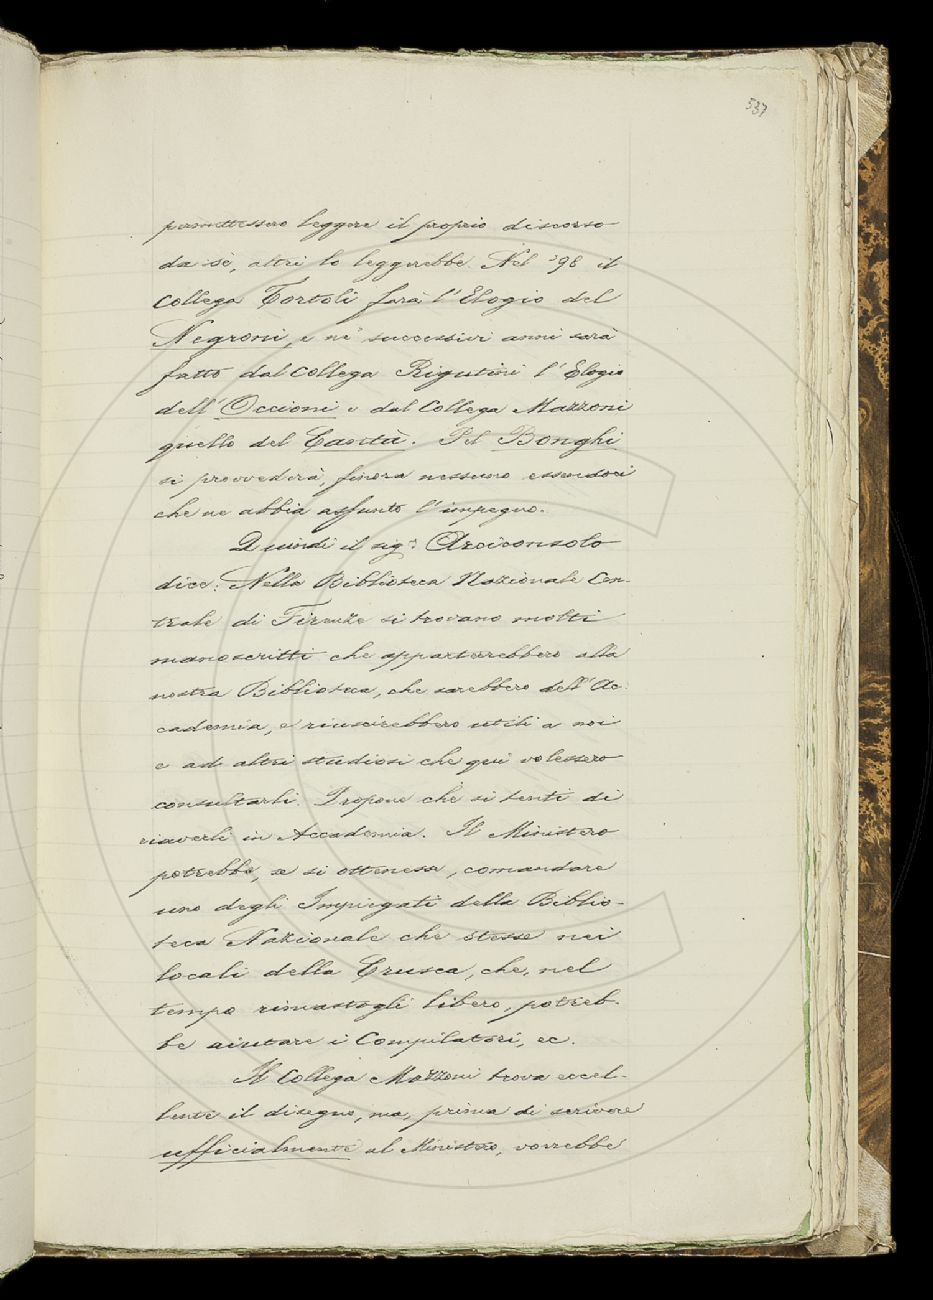 537
permettessero leggere il proprio discorso
da sè, altri lo leggerebbe. Nel '98 il
Collega Tortoli farà l'Elogio del
Negroni, e ne' successivi anni sarà
fatto dal Collega Rigutini l'Elogio
dell'Occioni e dal Collega Mazzoni
quello del Cantù. Pel Bonghi
si provvederà, finora nessuno essendovi
che ne abbia assunto l'impegno.
Quindi il sig.r Arciconsolo
dice: Nella Biblioteca Nazionale Cen-
trale di Firenze si trovano molti
manoscritti che apparterrebbero alla
nostra Biblioteca, che sarebbero dell'Ac-
cademia, e riuscirebbero utili a noi
e ad altri studiosi che qui volessero
consultarli. Propone che si tenti di
riaverli in Accademia. Il Ministero
potrebbe, se si ottenesse, comandare
uno degli Impiegati della Biblio-
teca Nazionale che stesse nei
locali della Crusca, che, nel
tempo rimastogli libero, potreb-
be aiutare i Compilatori, ec.
Il Collega Mazzoni trova eccel-
lente il disegno, ma, prima di scrivere
ufficialmente al Ministero, vorrebbe